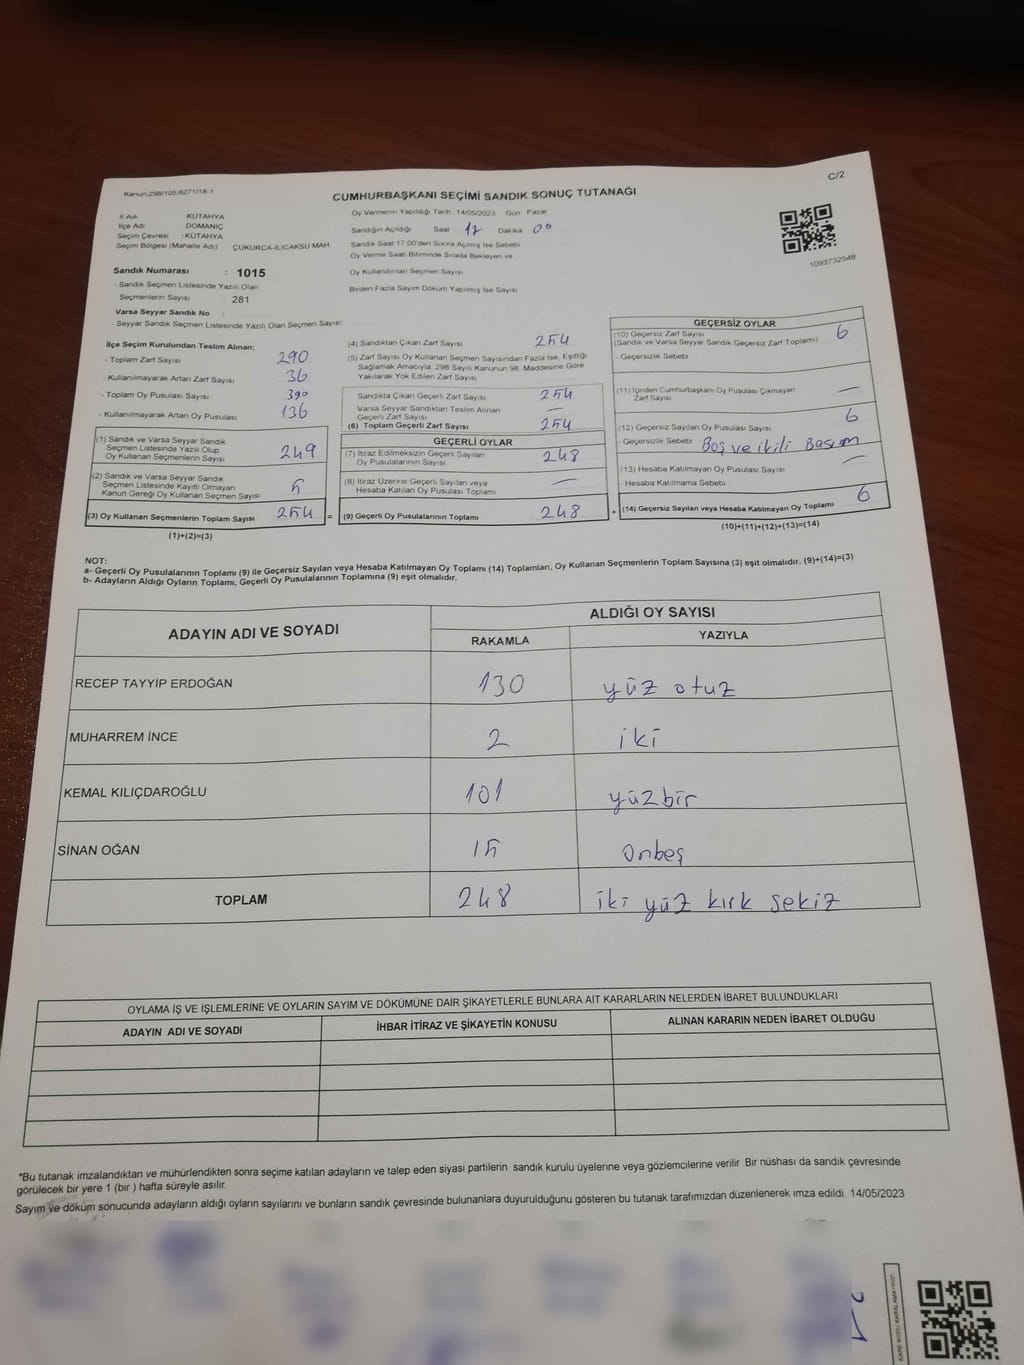 Kanun.298/105,6271/18-1
C/2
CUMHURBAŞKANI SEÇİMİ SANDIK SONUÇ TUTANAĞI
İl Adı KÜTAHYA
İlçe Adı DOMANİÇ
Seçim Çevresi : KÜTAHYA
Seçim Bölgesi (Mahalle Adı) ÇUKURCA-ILICAKSU MAH.
Sandık Numarası : 1015
- Sandık Seçmen Listesinde Yazılı Olan
Seçmenlerin Sayısı : 281
Varsa Seyyar Sandık No :
- Seyyar Sandık Seçmen Listesinde Yazılı Olan Seçmen Sayısı
Oy Vermenin Yapıldığı Tarih :14/05/2023 Gün Pazar
Sandığın Açıldığı Saat 17 Dakika 00
Sandık Saat 17.00'den Sonra Açılmış İse Sebebi
Oy Verme Saati Bitiminde Sırada Bekleyen ve
Oy Kullandırılan Seçmen Sayısı
Birden Fazla Sayım Döküm Yapılmış İse Sayısı
1093732548
İlçe Seçim Kurulundan Teslim Alınan;
- Toplam Zarf Sayısı 290
- Kullanılmayarak Artan Zarf Sayısı 36
- Toplam Oy Pusulası Sayısı 390
- Kullanılmayarak Artan Oy Pusulası 136
(1) Sandık ve Varsa Seyyar Sandık
Seçmen Listesinde Yazılı Olup
Oy Kullanan Seçmenlerin Sayısı 249
(2) Sandık ve Varsa Seyyar Sandık
Seçmen Listesinde Kayıtlı Olmayan
Kanun Gereği Oy Kullanan Seçmen Sayısı 5
(3) Oy Kullanan Seçmenlerin Toplam Sayısı 254 =
(1)+(2)=(3)
(4) Sandıktan Çıkan Zarf Sayısı 254
(5) Zarf Sayısı Oy Kullanan Seçmen Sayısından Fazla İse, Eşitliği
Sağlamak Amacıyla; 298 Sayılı Kanunun 98. Maddesine Göre
Yakılarak Yok Edilen Zarf Sayısı
Sandıkta Çıkan Geçerli Zarf Sayısı 254
Varsa Seyyar Sandıktan Teslim Alınan
Geçerli Zarf Sayısı —
(6) Toplam Geçerli Zarf Sayısı 254
GEÇERLİ OYLAR
(7) İtiraz Edilmeksizin Geçerli Sayılan
Oy Pusulalarının Sayısı 248
(8) İtiraz Üzerine Geçerli Sayılan veya
Hesaba Katılan Oy Pusulası Toplamı —
(9) Geçerli Oy Pusulalarının Toplamı 248 +
GEÇERSİZ OYLAR
(10) Geçersiz Zarf Sayısı 6
(Sandık ve Varsa Seyyar Sandık Geçersiz Zarf Toplamı)
- Geçersizlik Sebebi
(11) İçinden Cumhurbaşkanı Oy Pusulası Çıkmayan
Zarf Sayısı —
(12) Geçersiz Sayılan Oy Pusulası Sayısı 6
- Geçersizlik Sebebi Boş ve ikili Basım
(13) Hesaba Katılmayan Oy Pusulası Sayısı —
- Hesaba Katılmama Sebebi
(14) Geçersiz Sayılan veya Hesaba Katılmayan Oy Toplamı 6
(10)+(11)+(12)+(13)=(14)
NOT:
a- Geçerli Oy Pusulalarının Toplamı (9) ile Geçersiz Sayılan veya Hesaba Katılmayan Oy Toplamı (14) Toplamları, Oy Kullanan Seçmenlerin Toplam Sayısına (3) eşit olmalıdır. (9)+(14)=(3)
b- Adayların Aldığı Oyların Toplamı, Geçerli Oy Pusulalarının Toplamına (9) eşit olmalıdır.
ADAYIN ADI VE SOYADI ALDIĞI OY SAYISI
RAKAMLA YAZIYLA
RECEP TAYYİP ERDOĞAN 130 yüz otuz
MUHARREM İNCE 2 iki
KEMAL KILIÇDAROĞLU 101 yüzbir
SİNAN OĞAN 15 Onbeş
TOPLAM 248 iki yüz kırk sekiz
OYLAMA İŞ VE İŞLEMLERİNE VE OYLARIN SAYIM VE DÖKÜMÜNE DAİR ŞİKAYETLERLE BUNLARA AİT KARARLARIN NELERDEN İBARET BULUNDUKLARI
ADAYIN ADI VE SOYADI İHBAR İTİRAZ VE ŞİKAYETİN KONUSU ALINAN KARARIN NEDEN İBARET OLDUĞU
*Bu tutanak imzalandıktan ve mühürlendikten sonra seçime katılan adayların ve talep eden siyasi partilerin sandık kurulu üyelerine veya gözlemcilerine verilir .Bir nüshası da sandık çevresinde
görülecek bir yere 1 (bir ) hafta süreyle asılır.
Sayım ve döküm sonucunda adayların aldığı oyların sayılarını ve bunların sandık çevresinde bulunanlara duyurulduğunu gösteren bu tutanak tarafımızdan düzenlenerek imza edildi. 14/05/2023